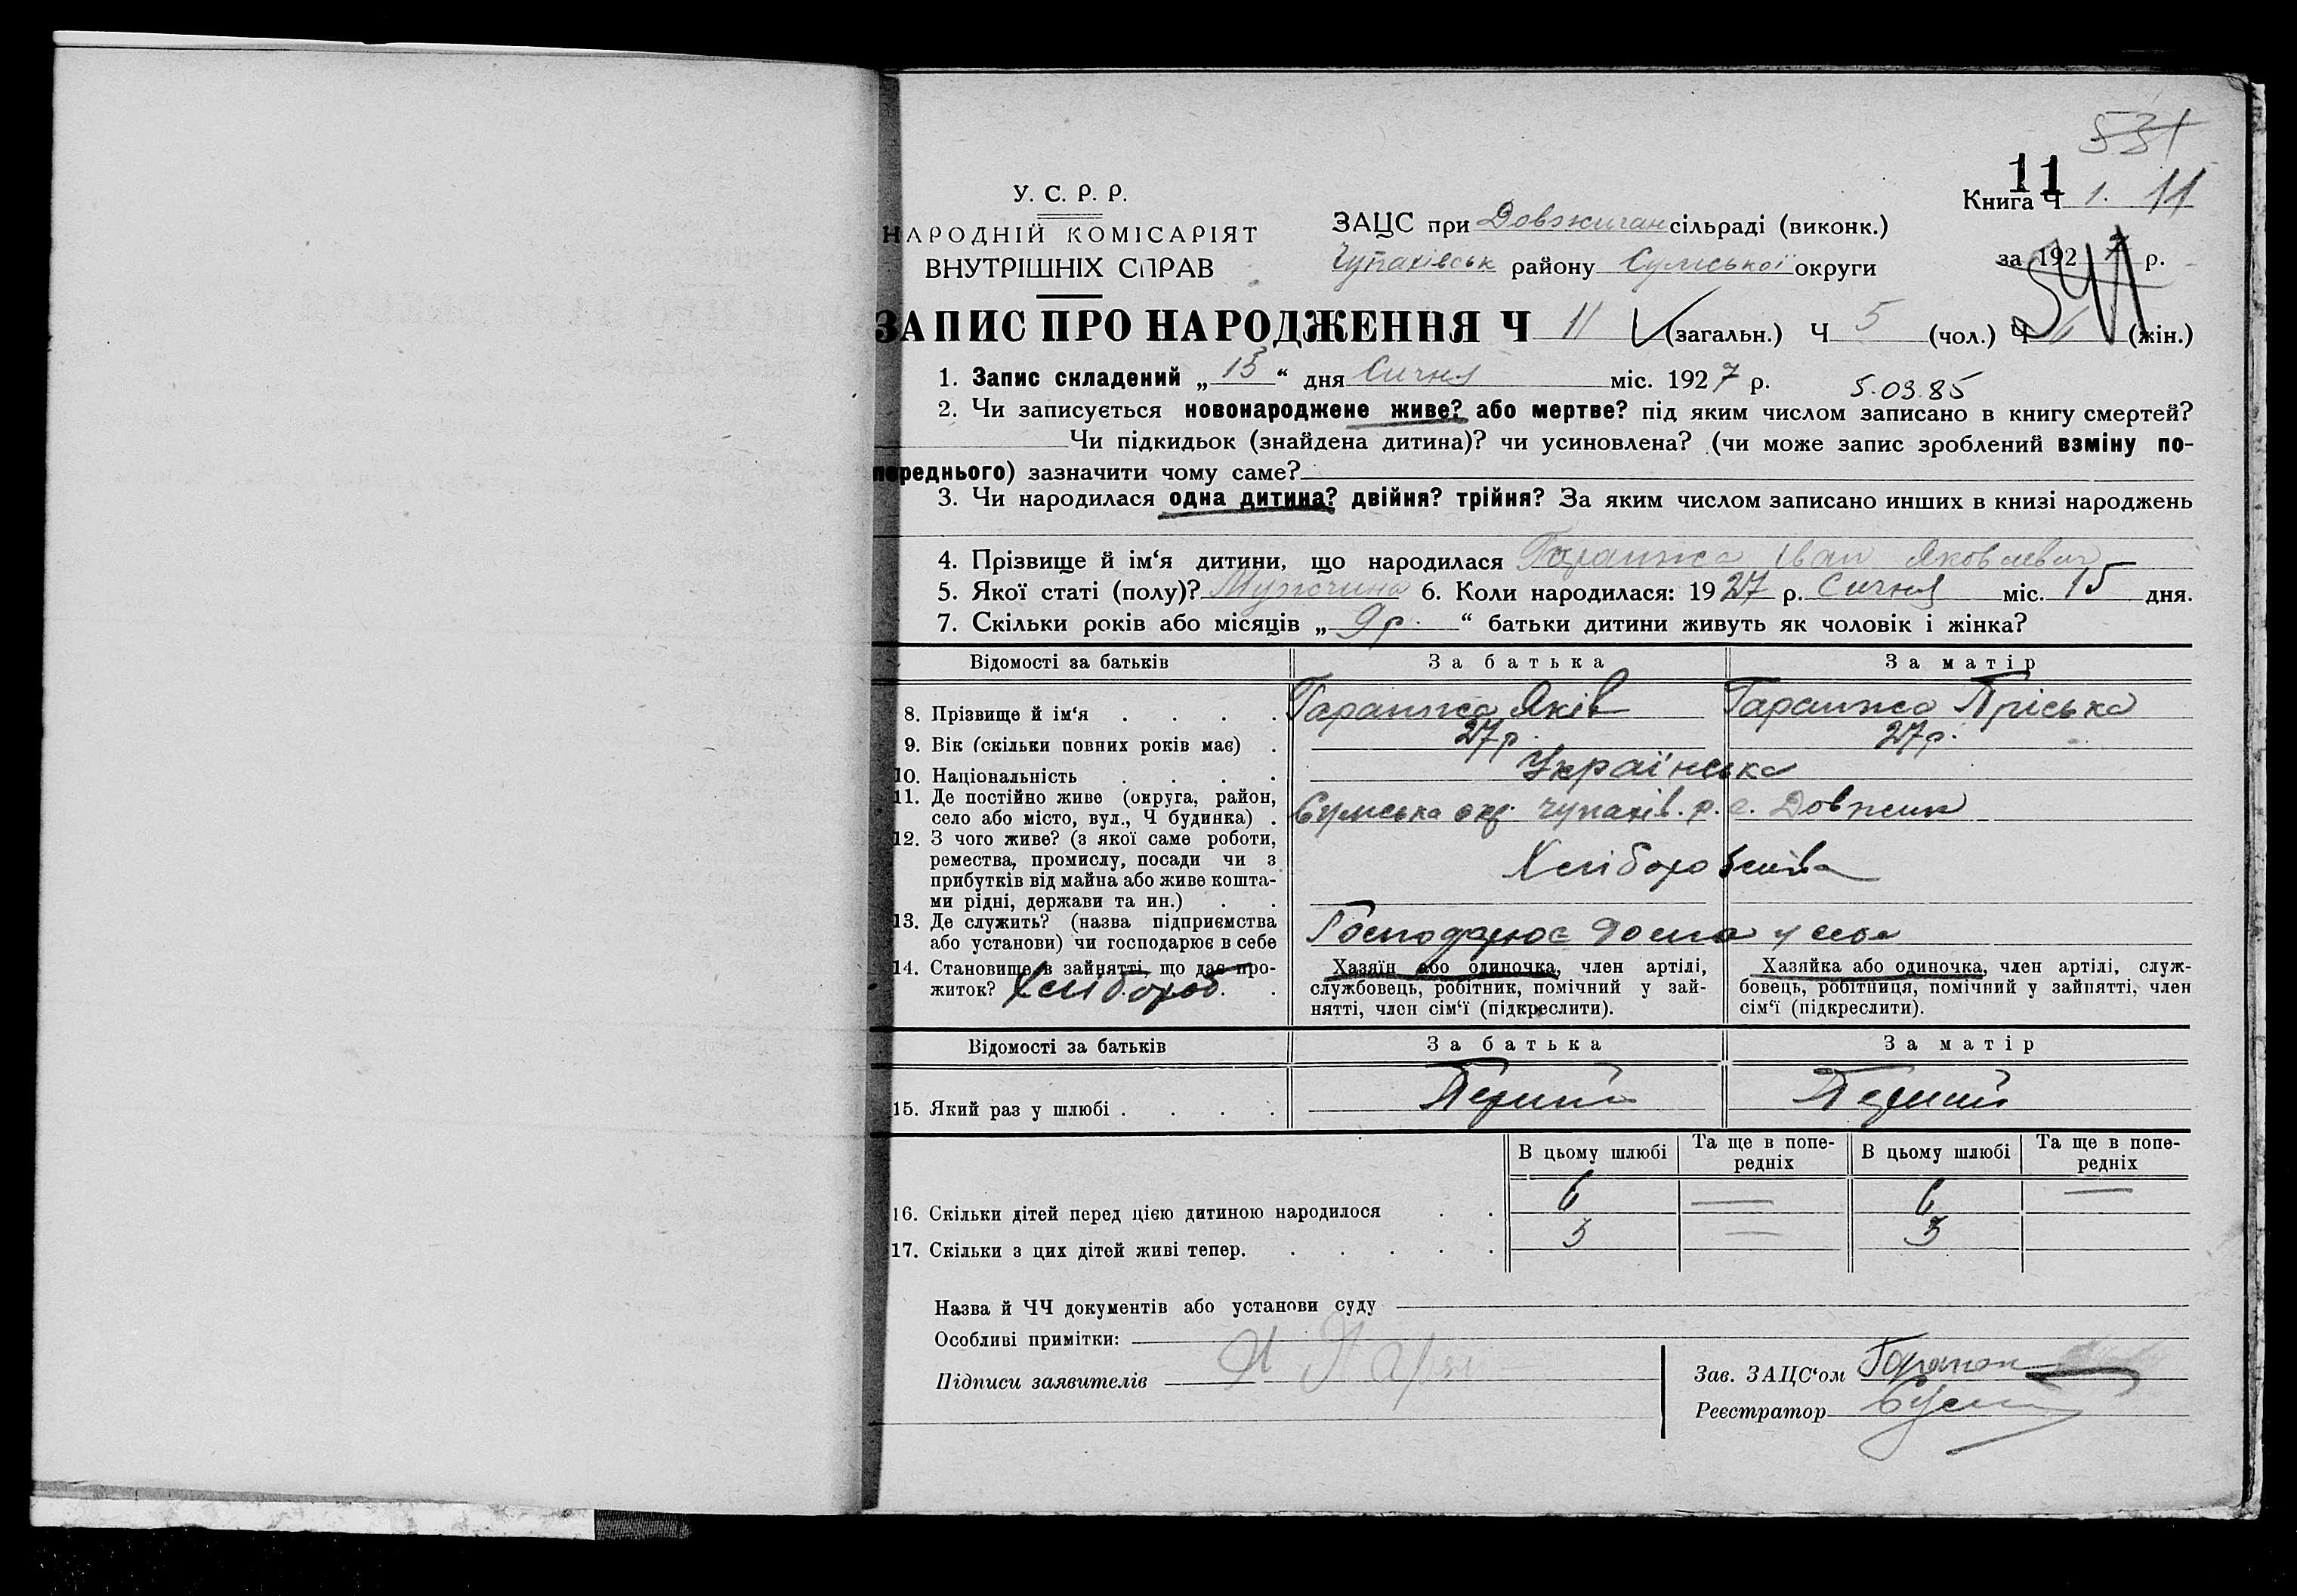 531
11
У. С. Р. Р.
Книга Ч 1. 11
НАРОДНІЙ КОМІСАРІЯТ
ЗАЦС при Довжичан сільраді (виконк.)
ВНУТРІШНІХ СПРАВ
Чупахівськ району Сумської округи
за 1927 р.
541
ЗАПИС ПРО НАРОДЖЕННЯ Ч 11 (загальн.) Ч 5 (чол.) Ч 6 (жін.)
1. Запис складений „ 15 “ дня Сичня міс. 1927 р.
5.03.85
2. Чи записується новонароджене живе? або мертве? під яким числом записано в книгу смертей?
Чи підкидьок (знайдена дитина)? чи усиновлена? (чи може запис зроблений взміну по-
переднього) зазначити чому саме?
3. Чи народилася одна дитина? двійня? трійня? За яким числом записано инших в книзі народжень
4. Прізвище й ім‘я дитини, що народилася Гаранжа Іван Яковлевич
5. Якої статі (полу)? Мужчина 6. Коли народилася: 1927 р. Сичня міс. 15 дня.
7. Скільки років або місяців „ 9 р. “ батьки дитини живуть як чоловік і жінка?
Відомості за батьків За батька За матір
8. Прізвище й ім‘я . . . . Гаранжа Яків Гаранжа Пріська
9. Вік (скільки повних років має) . 27 р. 27 р.
10. Національність . . . . Українська
11. Де постійно живе (округа, район,
село або місто, вул., Ч будинка) . Сумська окр. Чупахів. р. с. Довжик
12. З чого живе? (з якої саме роботи,
ремества, промислу, посади чи з
прибутків від майна або живе кошта-
ми рідні, держави та ин.) . .
Хліборобства
13. Де служить? (назва підприємства
або установи) чи господарює в себе Господарює дома у себе
14. Становище в зайнятті, що дає про-
житок? Хлібороб
Хазяїн або одиночка, член артілі,
службовець, робітник, помічний у зай-
нятті, член сім‘ї (підкреслити).
Хазяйка або одиночка, член артілі, служ-
бовець, робітниця, помічний у зайнятті, член
сім‘ї (підкреслити).
Відомості за батьків За батька За матір
15. Який раз у шлюбі . . . . Перший Перший
В цьому шлюбі Та ще в попе-
редніх В цьому шлюбі Та ще в попе-
редніх
16. Скільки дітей перед цією дитиною народилося . . 6 — 6 —
17. Скільки з цих дітей живі тепер. . . . . . 3 — 3
Назва й ЧЧ документів або установи суду
Особливі примітки:
Підписи заявителів
Зав. ЗАЦС‘ом
Реєстратор